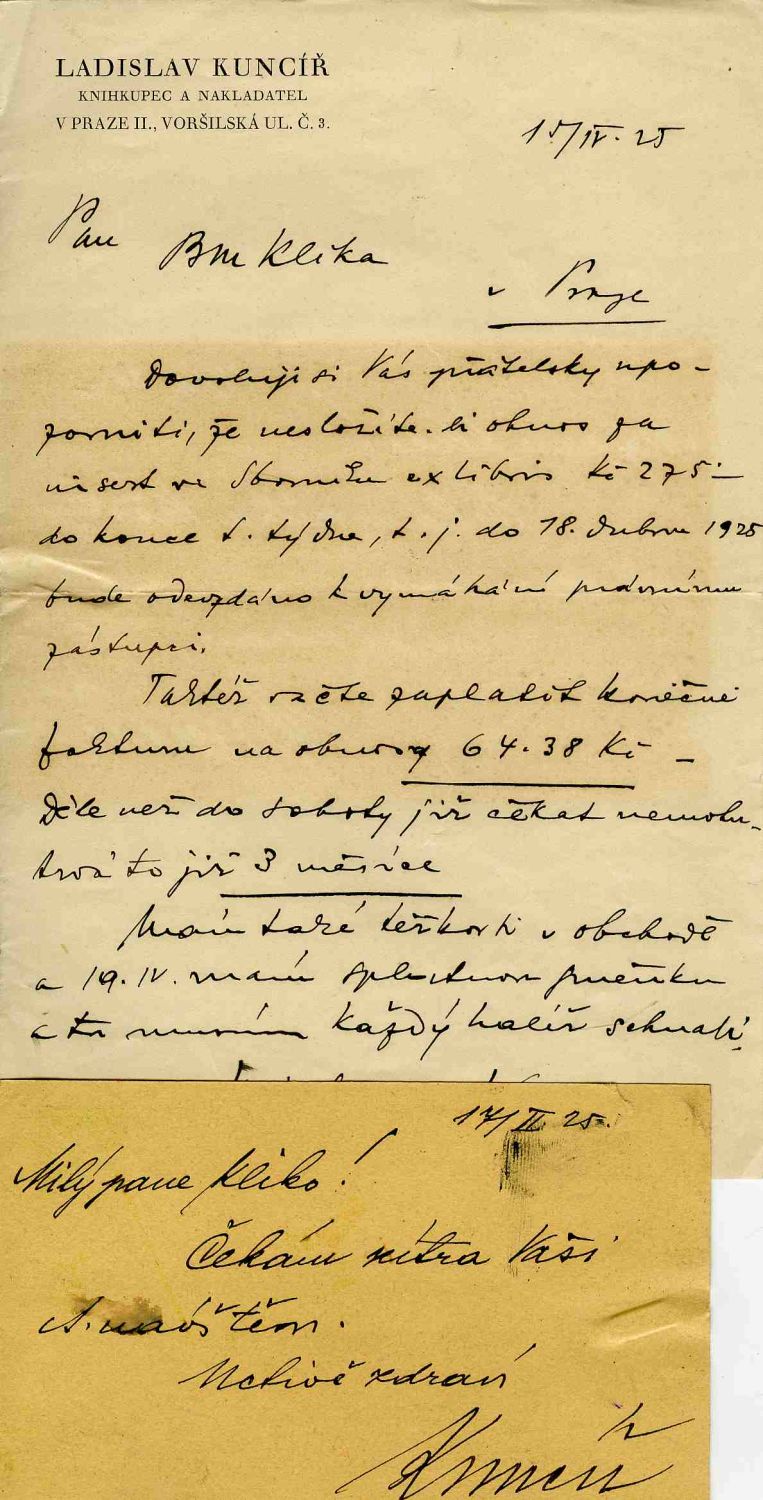 LADISLAV KUNCÍŘ
KNIHKUPEC A NAKLADATEL
V PRAZE II., VORŠILSKÁ UL. Č. 3.
15/IV. 25
Pan
Klika
v Praze
Dovoluji si Vás přátelsky upo-
zorniti, že nesložíte-li obnos za
insert ve Sborníku exlibris Kč 275.—
do konce t. týdne, t. j. do 18. dubna 1925
bude odevzdáno k vymáhání právnímu
zástupci.
Taktéž račte zaplatit konečně
fakturu na obnos 64.38 Kč —
Déle než do soboty již čekat nemohu
trvá to již 3 měsíce
Mám také těžkosti v obchodě
a 19. IV. mám splatnou směnku
a tu musím každý haléř sehnati.
17/II 25.
Milý pane Kliko!
Čekám zítra Vaši
návštěvu.
Uctivě zdraví
Kuncíř